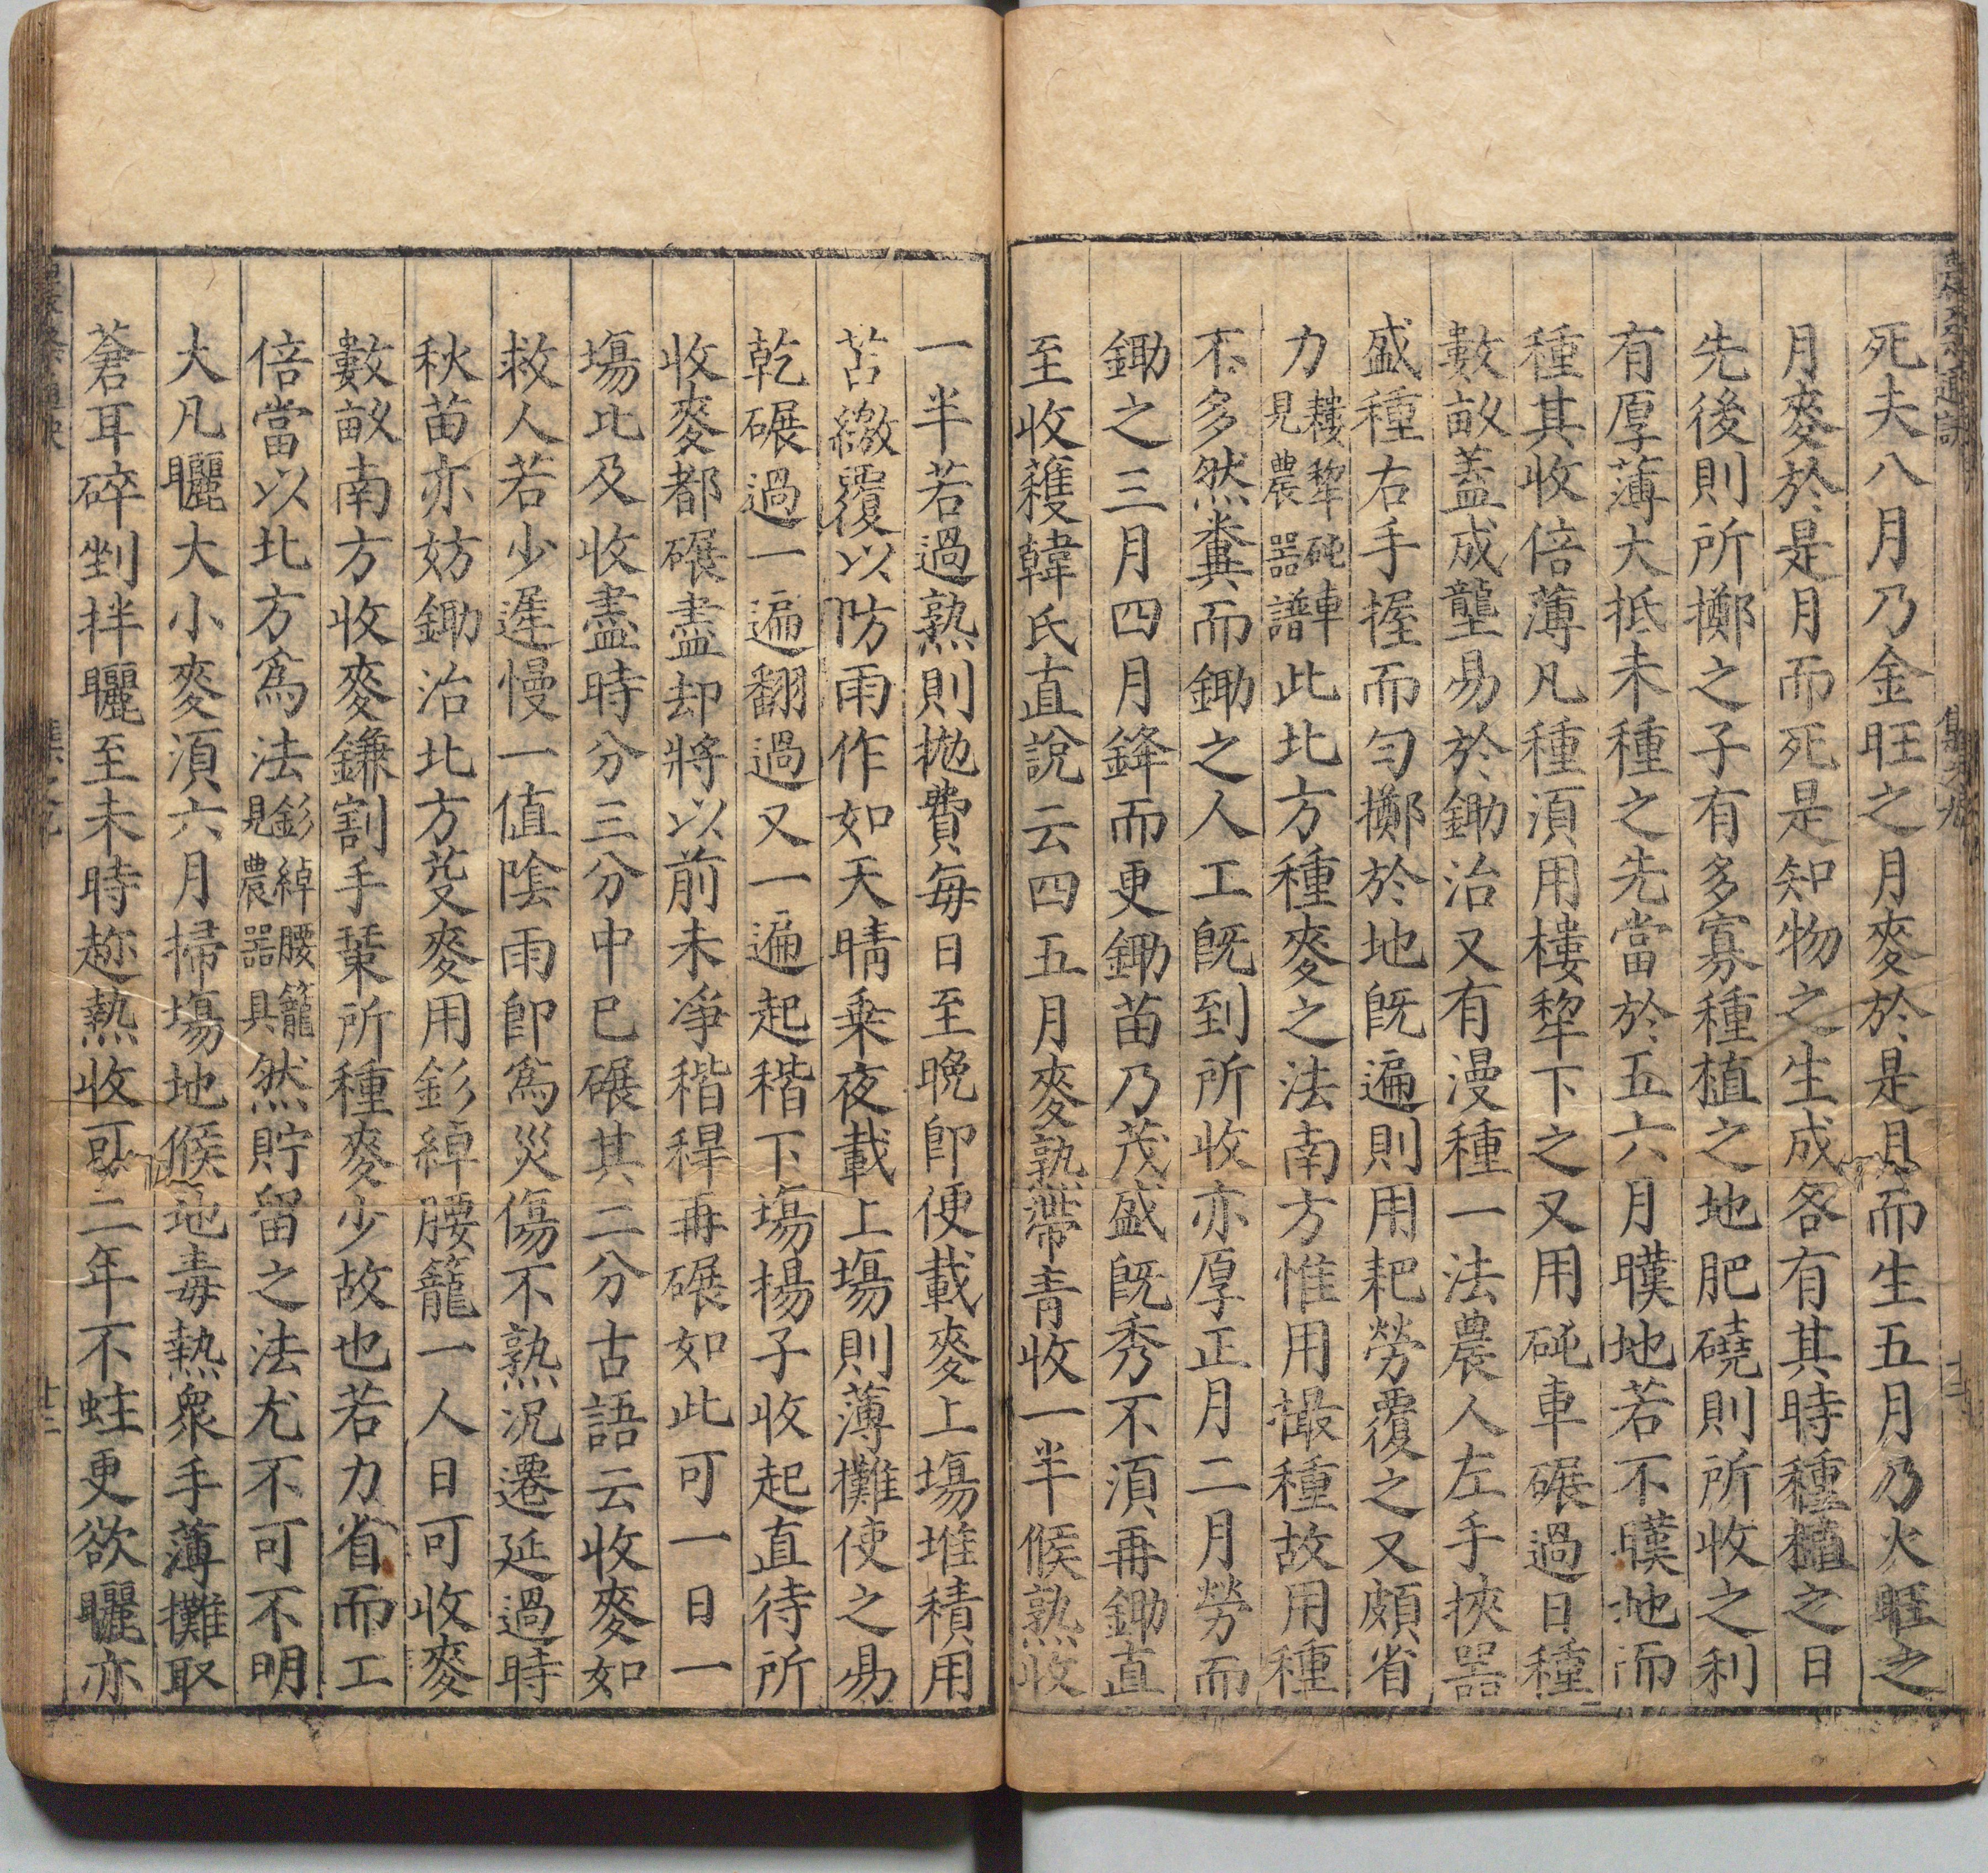 死夫八月乃金旺之月麥於是月而生五月乃火旺之
月麥於是月而死是知物之生成各有其時種植之日
先後則所擲之子有多寡種植之地肥磽則所收之利
有厚薄大抵未種之先當於五六月暵地若不暵地而
種其收倍薄凡種須用耬犂下之又用砘車碾過日種
數畝蓋成壟易於鋤治又有漫種一法農人左手挾器
盛種右手握而勻擲於地旣遍則用耙勞覆之又頗省
力耬犂砘車見農器譜此北方種麥之法南方惟用撮種故用種
不多然糞而鋤之人工旣到所收亦厚正月二月勞而
鋤之三月四月鋒而更鋤苗乃茂盛旣秀不須再鋤直
至收穫韓氏直說云四五月麥熟帶青收一半候熟收
一半若過熟則抛費每日至晩卽便載麥上場堆積用
苫繳覆以防雨作如天晴乗夜載上場則薄攤使之易
乾碾過一遍翻過又一遍起稭下場揚子收起直待所
收麥都碾盡却將以前未凈稭稈再碾如此可一日一
場比及收盡時分三分中巳碾其二分古語云收麥如
救人若少遲慢一值陰雨卽爲災傷不熟况遷延過時
秋苗亦妨鋤治北方芟麥用釤綽腰籠一人日可收麥
數畝南方收麥鎌割手葉所種麥少故也若力省而工
倍當以北方爲法釤綽腰籠見農器具然貯留之法尤不可不明
大凡曬大小麥須六月掃場地候地毒熱衆手薄攤取
蒼耳碎剉拌曬至未時趂熱收可二年不蛀更欲曬亦